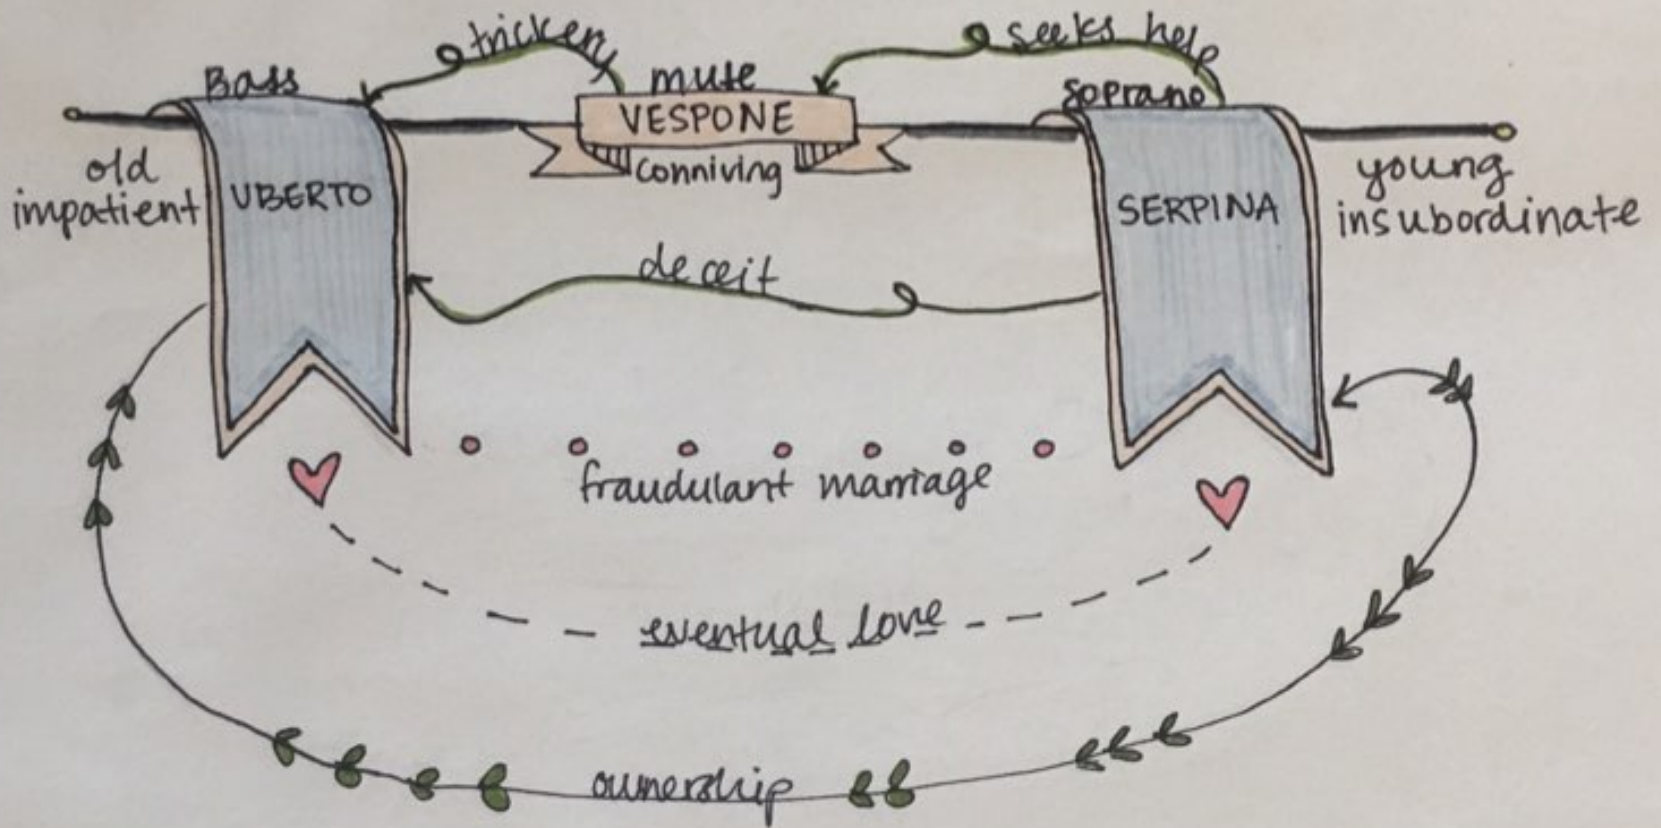 trickery
seeks help
Bass
mute
soprano
VESPONE
old
impatient
UBERTO
conniving
SERPINA
young
insubordinate
deceit
fraudulant marriage
eventual love
ownership